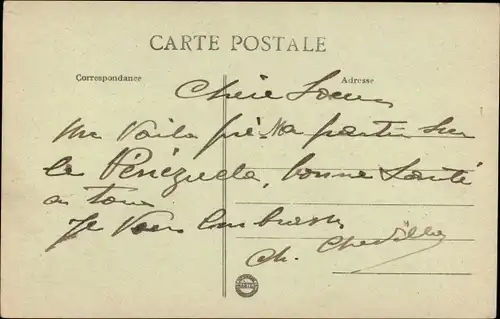 CARTE POSTALE
Correspondance
Adresse
Chère Soeur
me Voila prêt a partir sur
le Vénézuela, bonne Santé
a tous
Je Vous Embrasse
Ch.